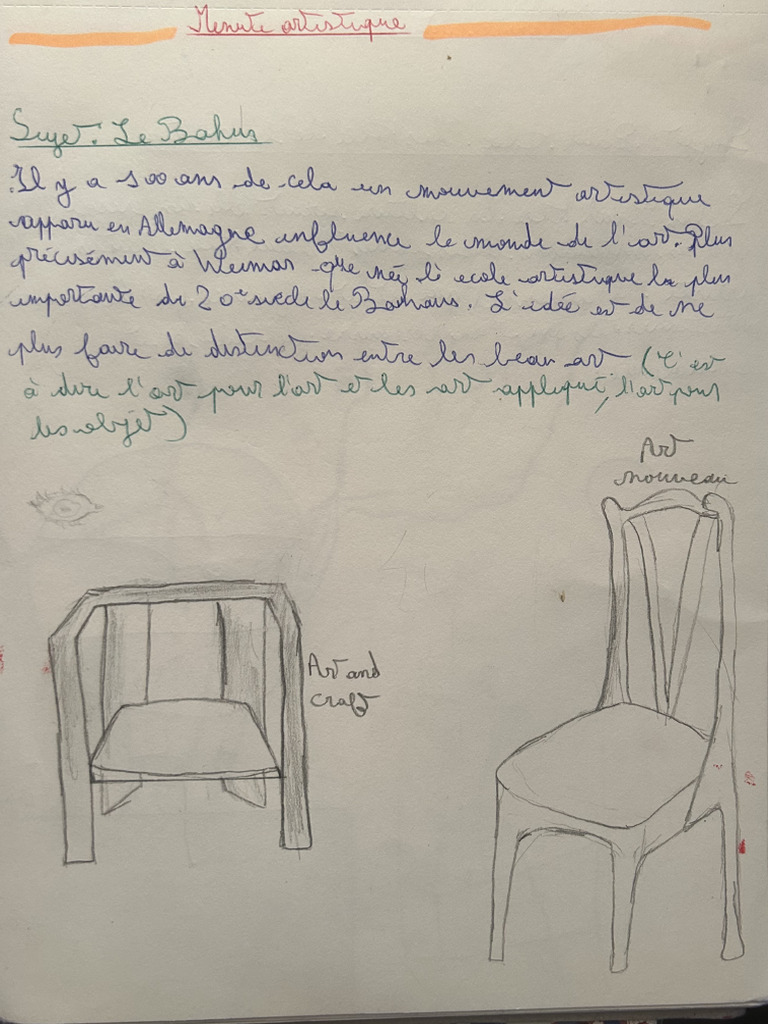 Menute artistique
Sujet. Le Bahus
Il y a 100 ans de cela un mouvement artistique
apparu en Allemagne influence le monde de l'art. Plus
précisément à Weimar que née l'école artistique la plus
importante du 20e siècle le Bauhaus. L'idée est de ne
plus faire de distinction entre les beau art (C'est
à dire l'art pour l'art et les art appliqué, l'art pour
les objét)
Art
nouveau
Art and
craft